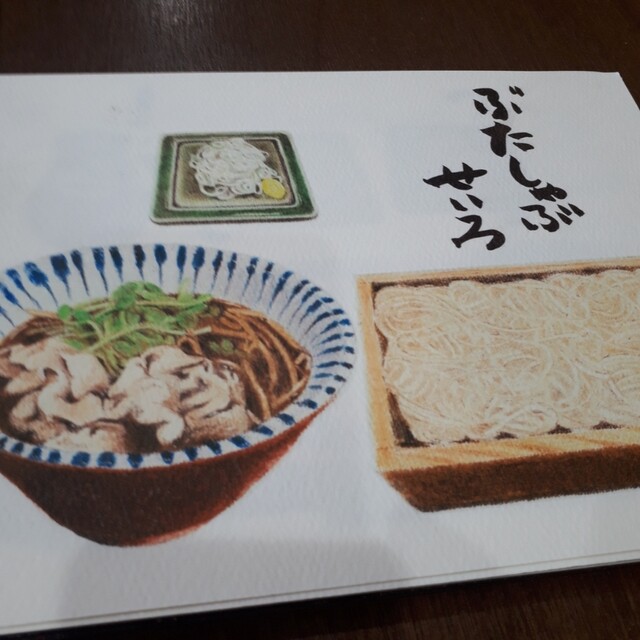 ぶたしゃぶ
せいろ